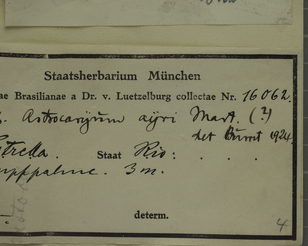 Staatsherbarium München
ae Brasilianae a Dr. v. Luetzelburg collectae Nr. 16062.
Astrocaryum ayri Mart. (?)
det Burret 1924
Estrella. Staat Rio: . . .
3 m.
determ.
4